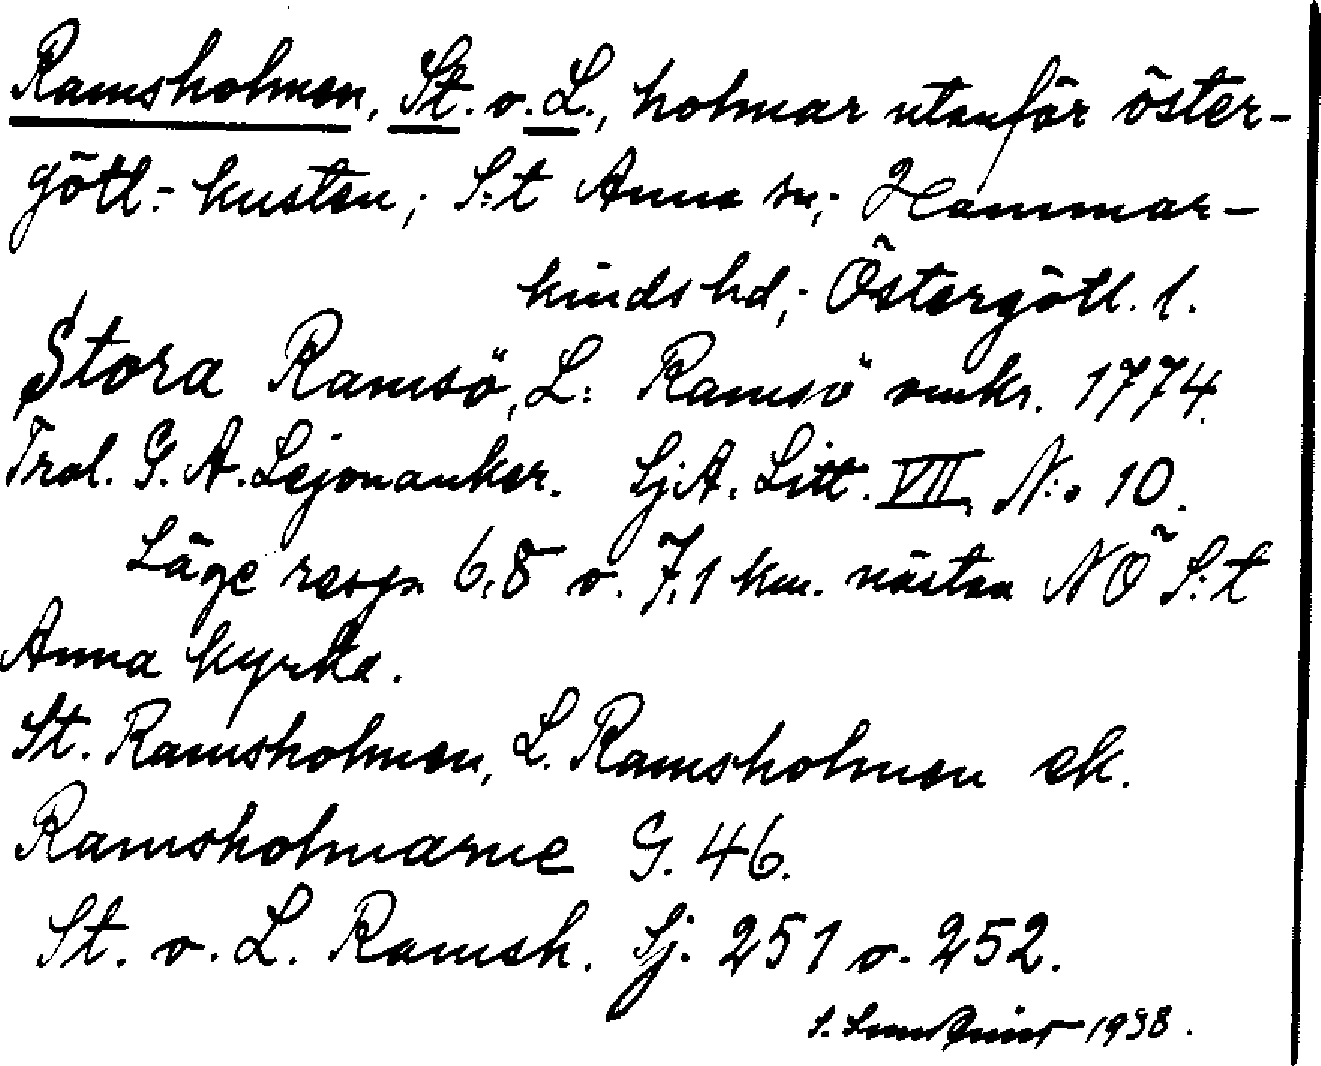 Ramsholmen, St. o. L., holmar utanför öster-
götl.- kusten; S:t Anna sn; Hammar-
kinds hd; Östergötl. l.
Stora Ramsö, L: Ramsö omkr. 1774.
Trol. G. A. Lejonanker. SjA. Litt. VII, N:o 10.
Läge resp. 6,8 o. 7,1 km. nästan NÖ S:t
Anna kyrka.
St. Ramsholmen, L. Ramsholmen ek.
Ramsholmarne G. 46.
St. o. L. Ramsh. Sj. 251 o. 252.
1938.